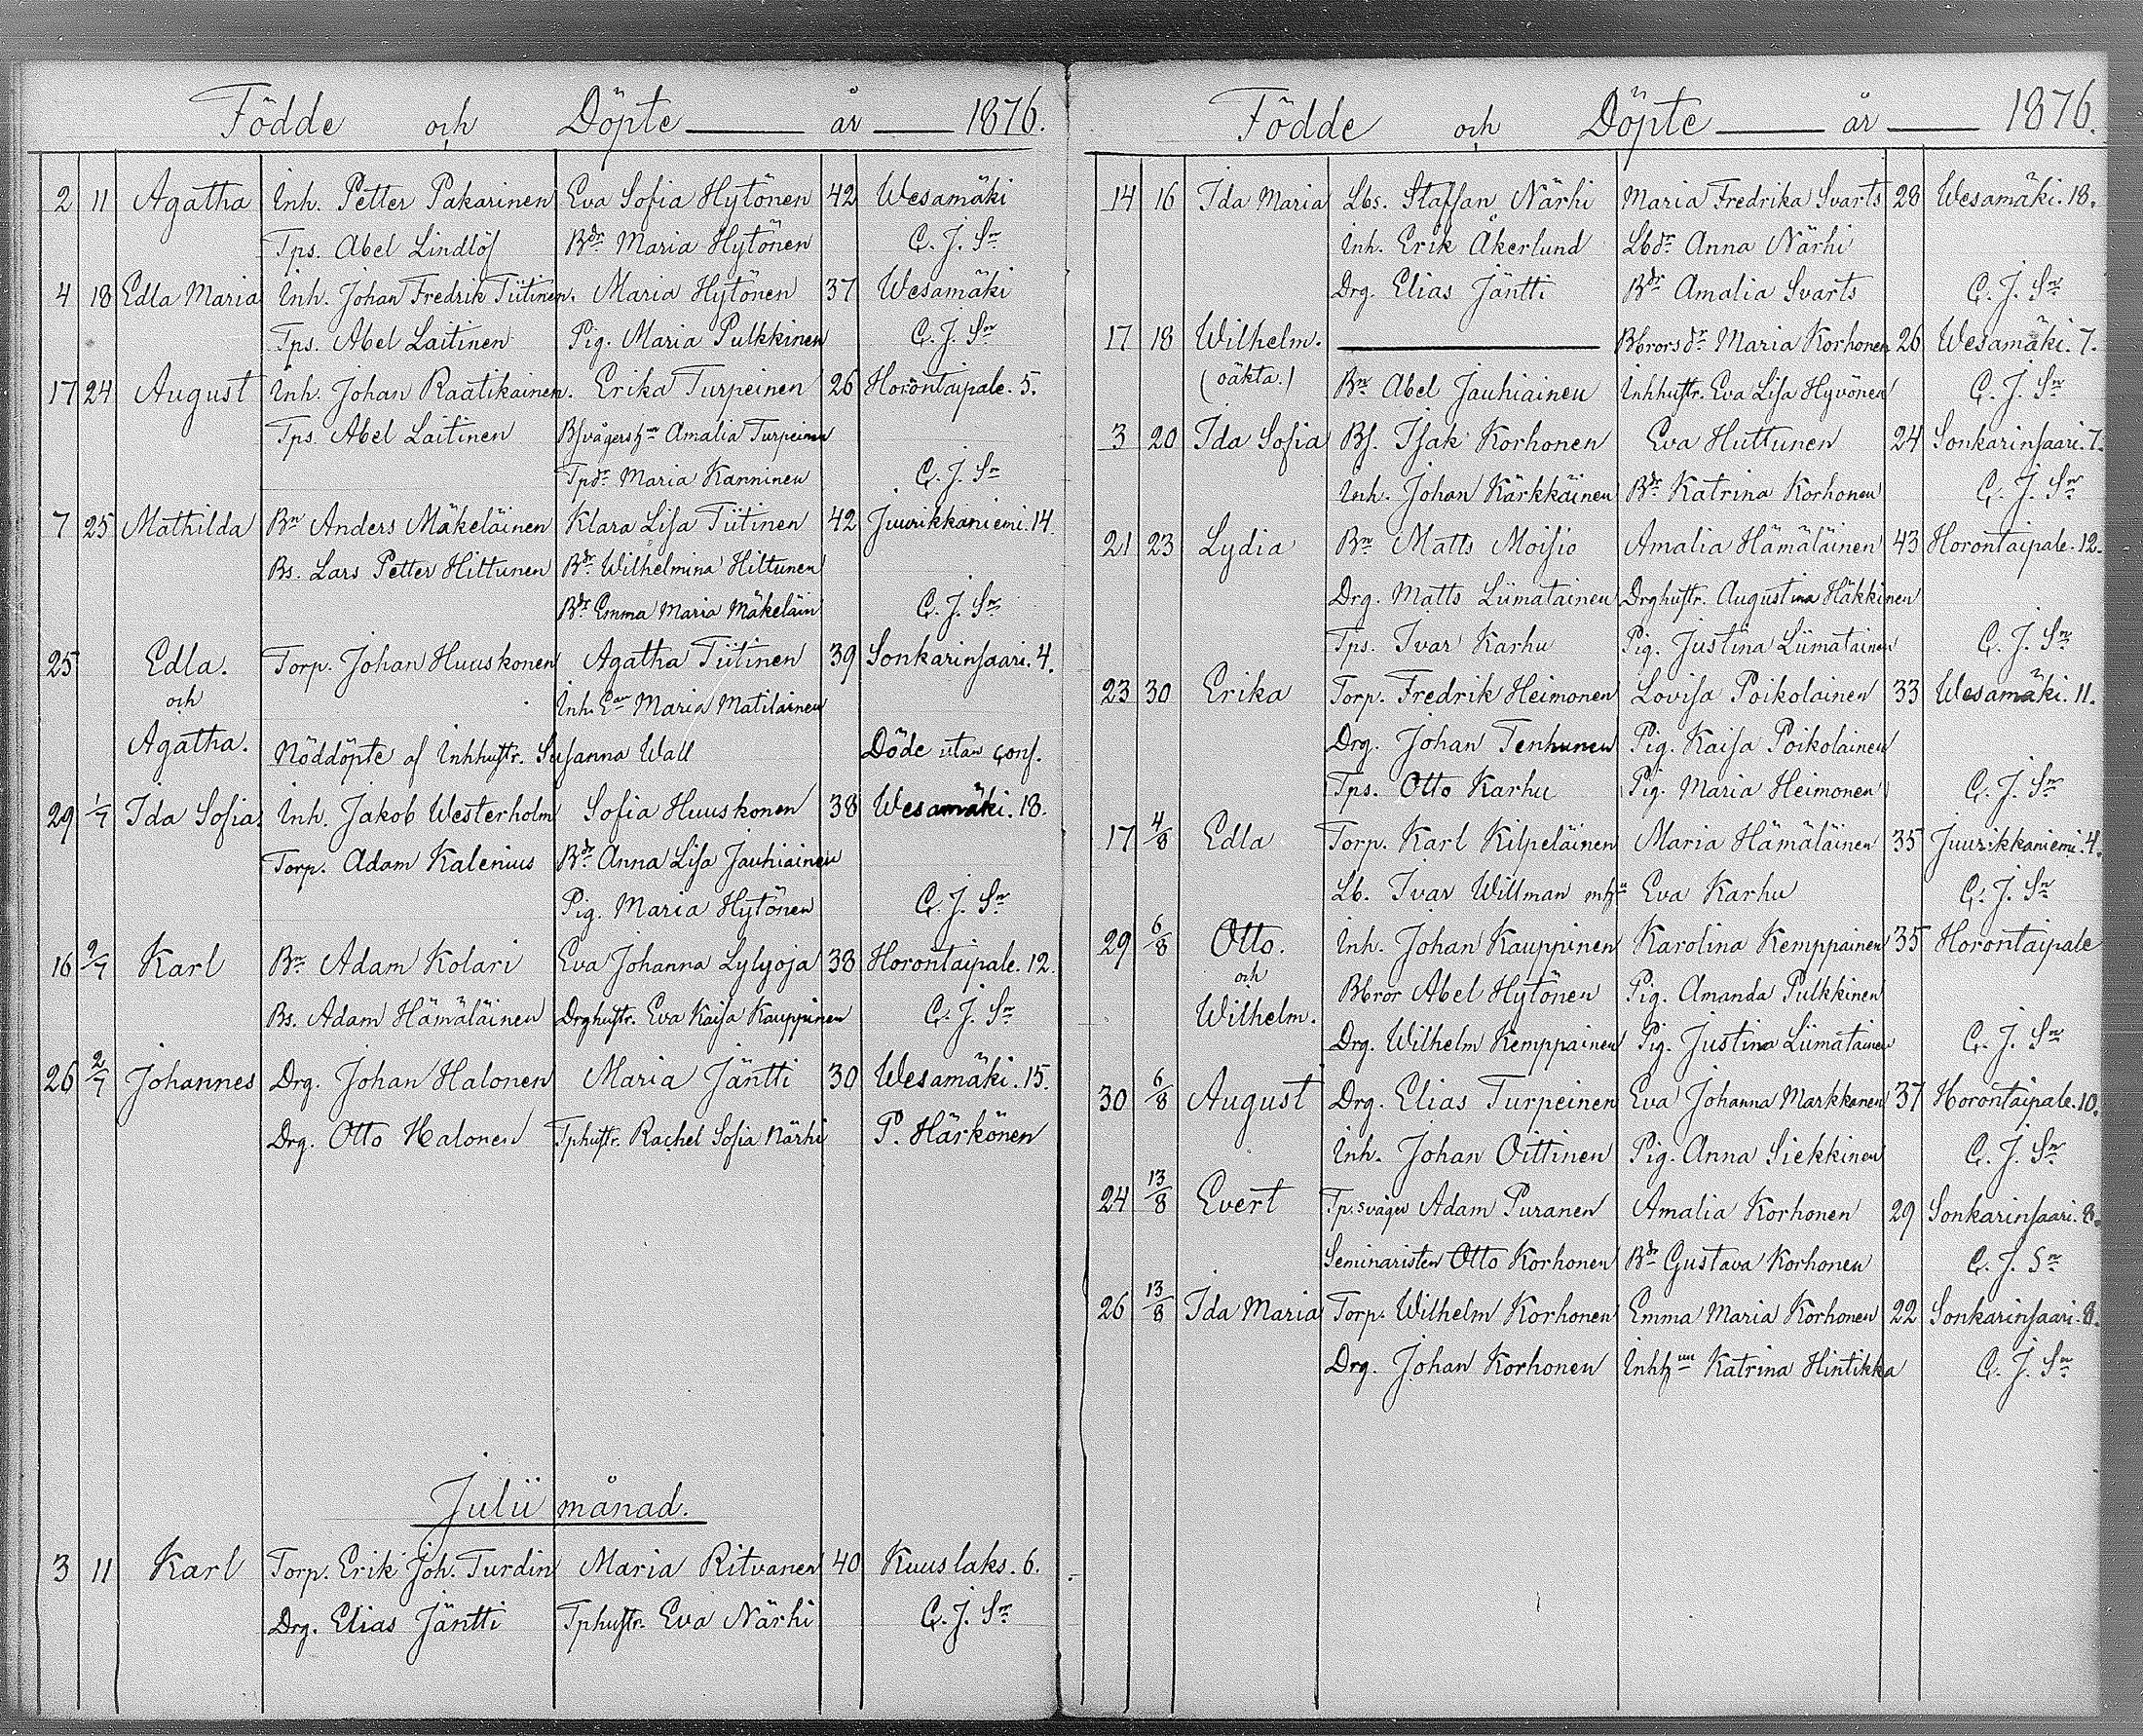 Födde och Döpte år 1876.
2 11 Agatha Inh. Petter Pakarinen Eva Sofia Hytönen 42 Wesamäki
Tps. Abel Lindlöf Bdr Maria Hytönen C. J. Sn
4 18 Edla Maria Inh. Johan Fredrik Tiitinen. Maria Hytönen 37 Wesamäki
Tps. Abel Laitinen Pig. Maria Pulkkinen C. J. Sn
17 24 August Inh. Johan Raatikainen. Erika Turpeinen 26 Horontaipale. 5.
Tps. Abel Laitinen Bsvägersh Amalia Turpeinen
Tpdr Maria Kanninen C. J. Sn
7 25 Mathilda Bn Anders Mäkeläinen Klara Lisa Tiitinen 42 Juurikkaniemi. 14.
Bs. Lars Petter Hiltunen Bdr Wilhelmina Hiltunen
Bdr Emma Maria Mäkeläin C. J. Sn
25 Edla. Torp. Johan Huuskonen Agatha Tiitinen 39 Sonkarinsaari. 4.
och Inh. Ean Maria Matilainen
Agatha. Nöddöpte af Inhhustr. Susanna Wall Döde utan conf.
29 1/7 Ida Sofia. Inh. Jakob Westerholm Sofia Huuskonen 38 Wesamäki. 18.
Torp. Adam Kalenius Bdr Anna Lisa Jauhiainen
Pig. Maria Hytönen C. J. Sn
16 9/7 Karl Bn Adam Kolari Eva Johanna Lylyoja 38 Horontaipale. 12.
Bs. Adam Hämäläinen Drghustr. Eva Kaisa Kauppinen C. J. Sn
26 2/7 Johannes Drg. Johan Halonen Maria Jäntti 30 Wesamäki. 15.
Drg. Otto Halonen Tphustr. Rachel Sofia Närhi P. Härkönen
Julii månad.
3 11 Karl Torp. Erik Joh. Turdin Maria Ritvanen 40 Kuuslaks. 6.
Drg. Elias Jäntti Tphustr. Eva Närhi C. J. Sn
Födde och Döpte år 1876.
14 16 Ida Maria Lbs. Staffan Närhi Maria Fredrika Svarts 28 Wesamäki. 18.
Inh. Erik Åkerlund Lbdr Anna Närhi
Drg. Elias Jäntti Bdr Amalia Svarts C. J. Sn
17 18 Wilhelm. Bbrorsdr Maria Korhonen 26 Wesamäki. 7.
(oäkta.) Bn Abel Jauhiainen Inhhustr. Eva Lisa Hyvönen C. J. Sn
3 20 Ida Sofia Bs. Isak Korhonen Eva Huttunen 24 Sonkarinsaari. 7.
Inh. Johan Kärkkäinen Bdr Katrina Korhonen C. J. Sn
21 23 Lydia Bn Matts Moisio Amalia Hämäläinen 43 Horontaipale. 12.
Drg. Matts Liimatainen Drghustr. Augustina Häkkinen
Tps. Ivar Karhu Pig. Justina Liimatainen C. J. Sn
23 30 Erika Torp. Fredrik Heimonen Lovisa Poikolainen 33 Wesamäki. 11.
Drg. Johan Tenhunen Pig. Kaisa Poikolainen
Tps. Otto Karhu Pig. Maria Heimonen C. J. Sn
17 4/8 Edla Torp. Karl Kilpeläinen Maria Hämäläinen 35 Juurikkaniemi. 4.
Lb. Ivar Willman Eva Karhu C. J. Sn
29 6/8 Otto. Inh. Johan Kauppinen Karolina Kemppainen 35 Horontaipale
och Bbror Abel Hytönen Pig. Amanda Pulkkinen
Wilhelm. Drg. Wilhelm Kemppainen Pig. Justina Liimatainen C. J. Sn
30 6/8 August Drg. Elias Turpeinen Eva Johanna Markkanen 37 Horontaipale. 10.
Inh. Johan Oittinen Pig. Anna Siekkinen C. J. Sn
24 13/8 Evert Tp. svåger Adam Puranen Amalia Korhonen 29 Sonkarinsaari. 8.
Seminaristen Otto Korhonen Bdr Gustava Korhonen C. J. Sn
26 13/8 Ida Maria Torp. Wilhelm Korhonen Emma Maria Korhonen 22 Sonkarinsaari. 8.
Drg. Johan Korhonen Katrina Hintikka C. J. Sn